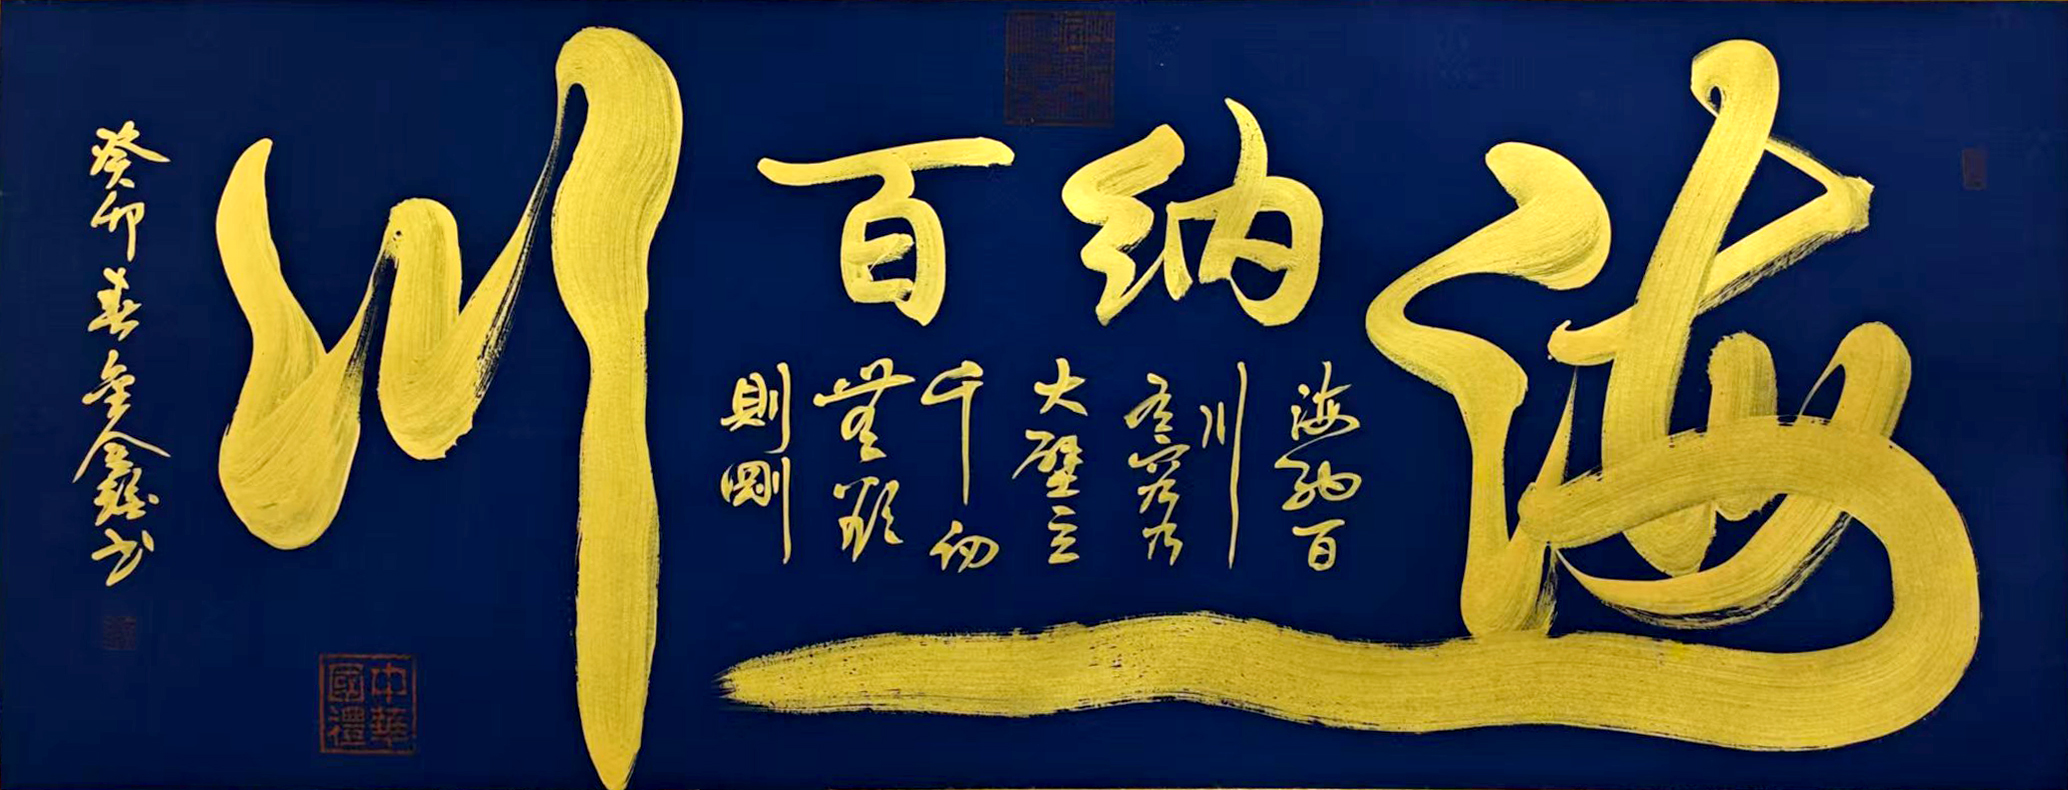 海纳百川
海纳百
川
有容乃
大壁立
千仞
無欲
則剛
癸卯春金鑫书
中華
國禮